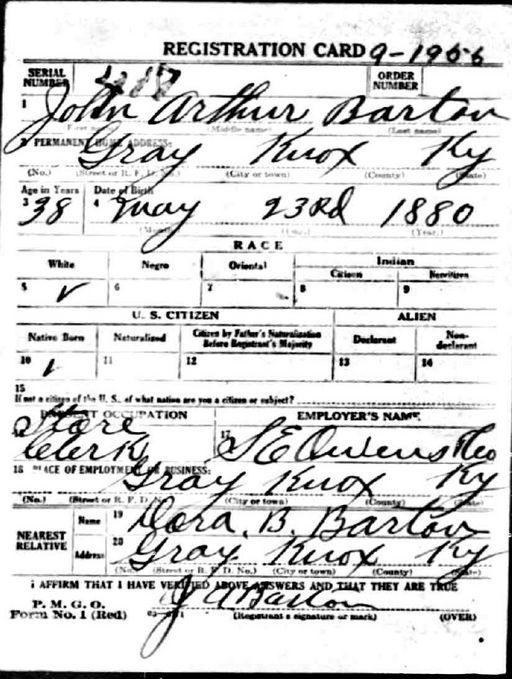 REGISTRATION CARD 9-1956
SERIAL NUMBER
ORDER NUMBER
1 John Arthur Barton
(First name) (Middle name) (Last name)
2 PERMANENT HOME ADDRESS:
Gray Knox Ky
(No.) (Street or R. F. D. No.) (City or town) (County) (State)
Age in Years Date of Birth
3 38 4 May 23rd 1880
(Month) (Day) (Year)
RACE
White Negro Oriental Indian
Citizen Noncitizen
5 ✓ 6 7 8 9
U. S. CITIZEN ALIEN
Native Born Naturalized Citizen by Father's Naturalization Before Registrant's Majority Declarant Non-declarant
10 ✓ 11 12 13 14
15
If not a citizen of the U. S., of what nation are you a citizen or subject?
PRESENT OCCUPATION EMPLOYER'S NAME
Store
Clerk 17 S E Owens & Co
18 PLACE OF EMPLOYMENT OR BUSINESS:
Gray Knox Ky
(No.) (Street or R. F. D. No.) (City or town) (County) (State)
NEAREST RELATIVE
Name 19 Dora. B. Barton
Address 20 Gray Knox Ky
(No.) (Street or R. F. D. No.) (City or town) (County) (State)
I AFFIRM THAT I HAVE VERIFIED ABOVE ANSWERS AND THAT THEY ARE TRUE
P. M. G. O.
Form No. 1 (Red)
J A Barton
(Registrant's signature or mark) (OVER)